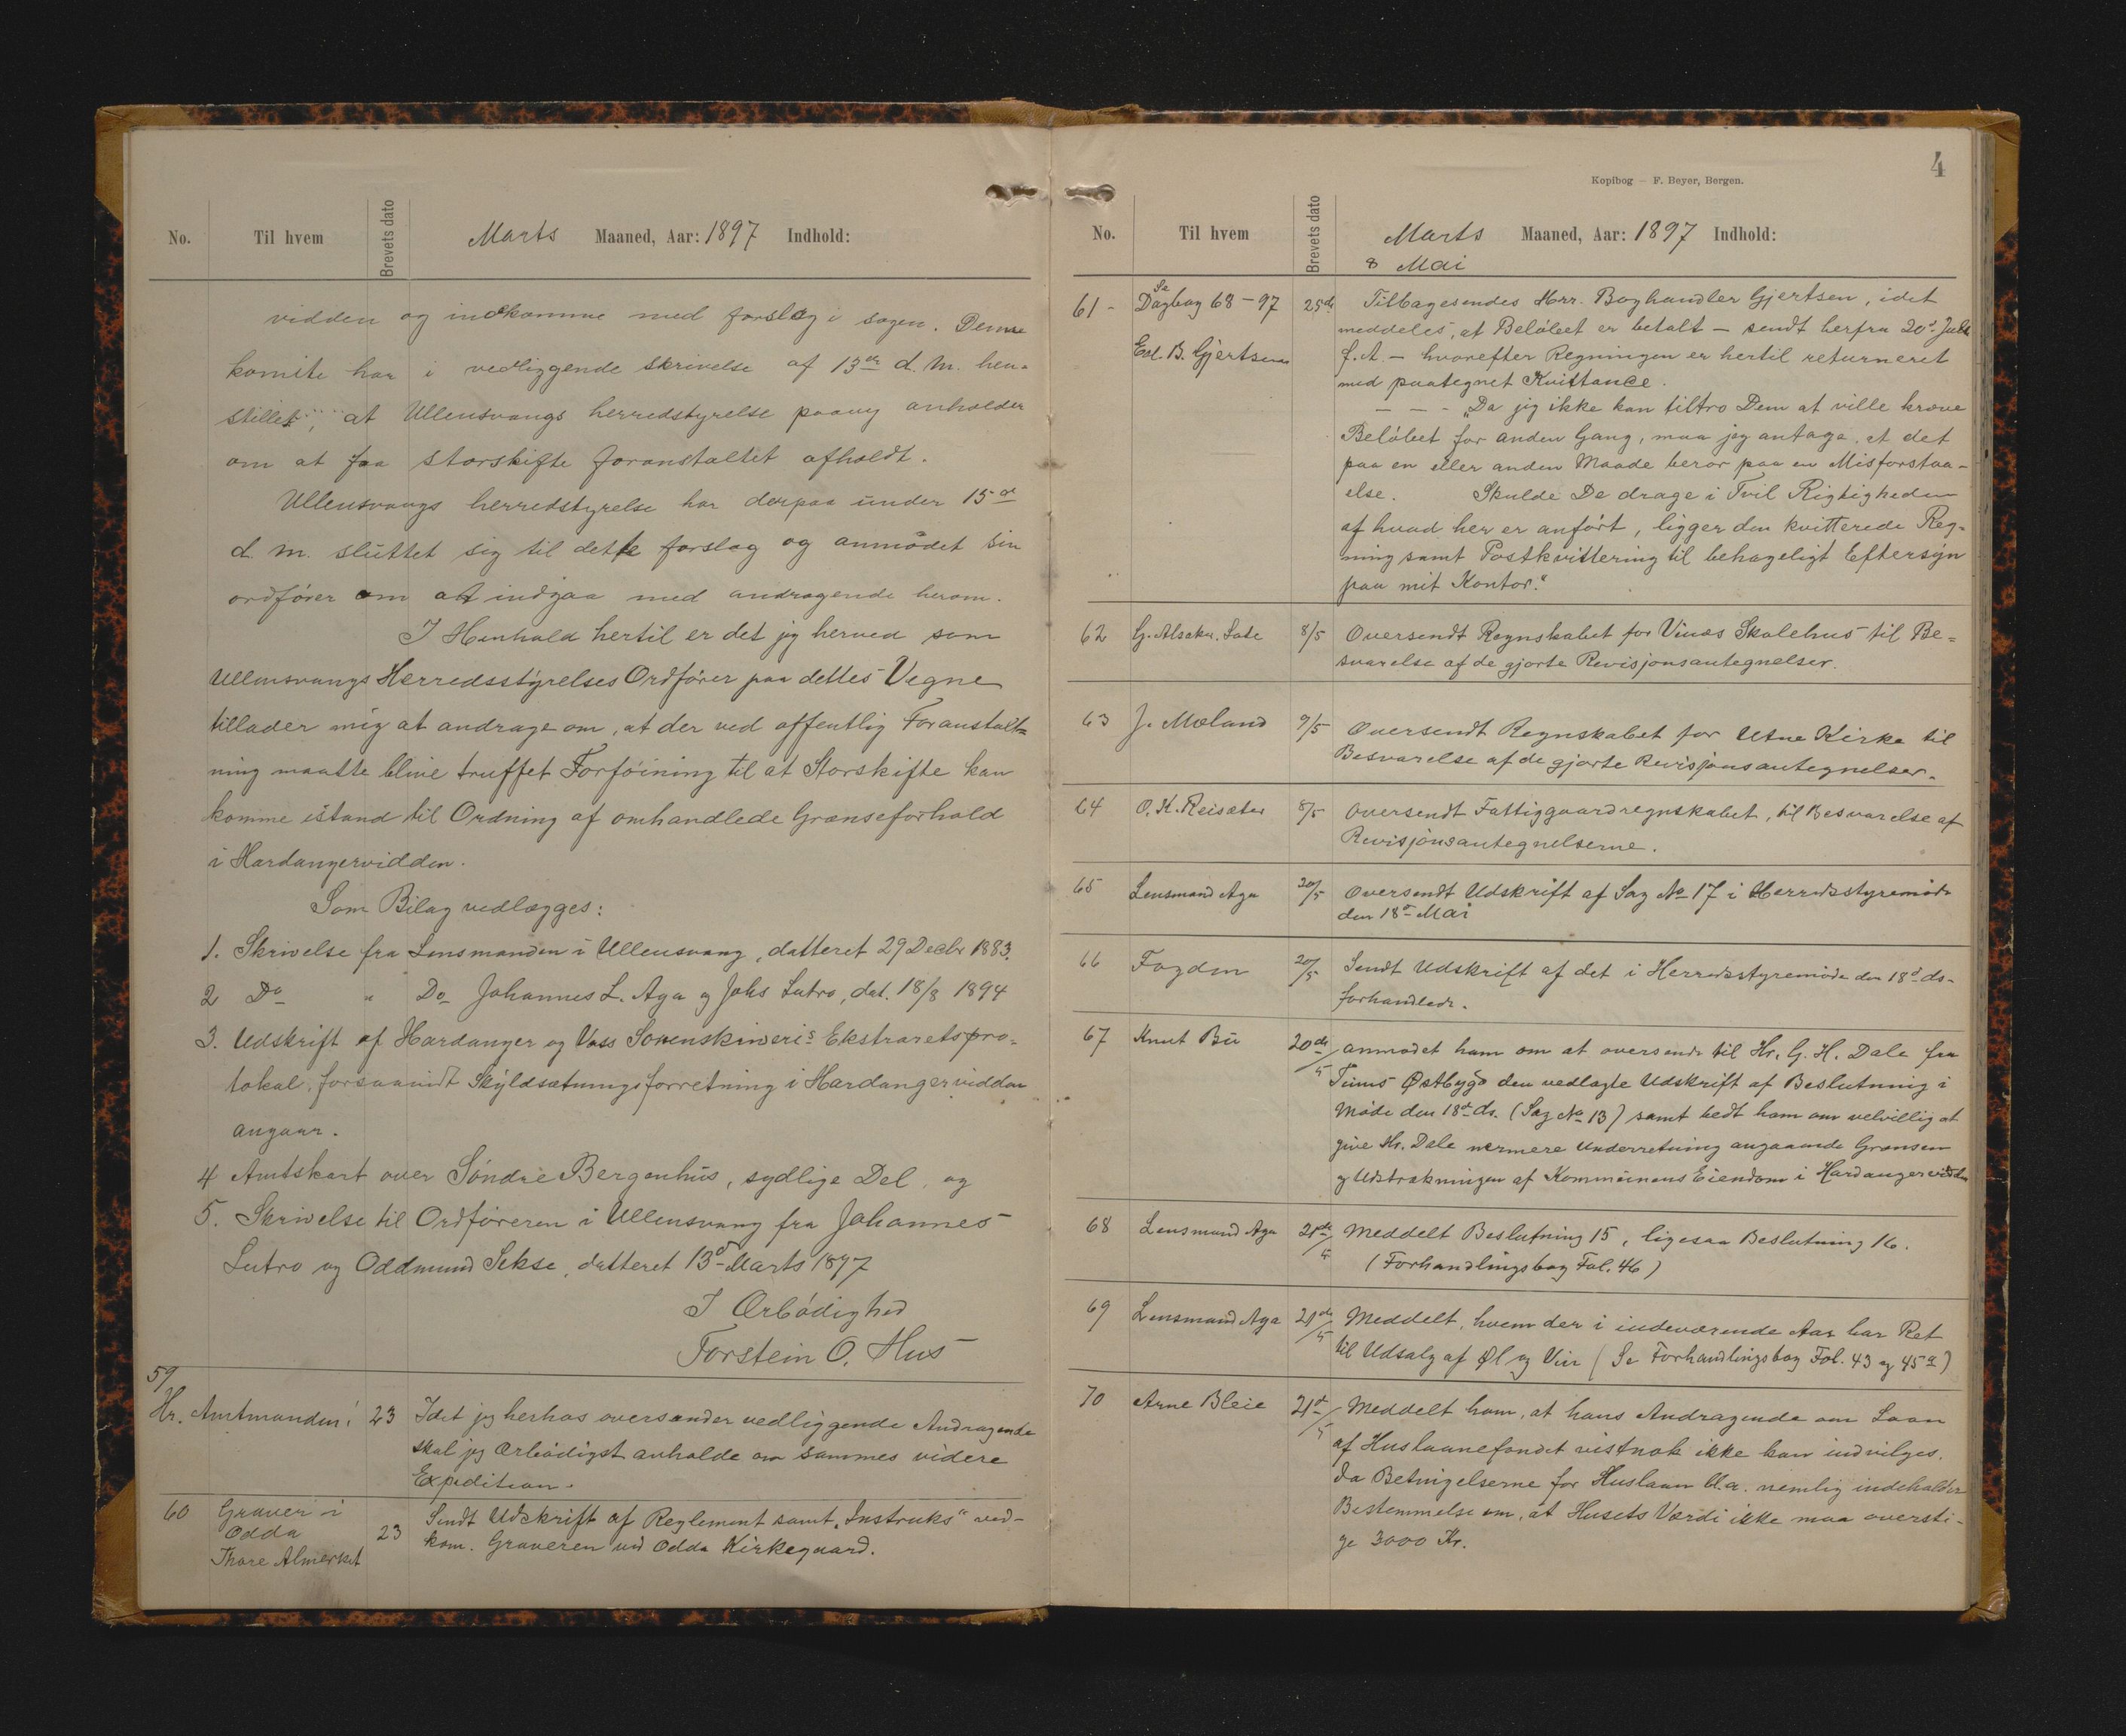 No. Til hvem Brevets dato Marts Maaned, Aar: 1897 Indhold:
vidden og indkomme med forslag i sagen. Denne
komite har i vedliggende skrivelse af 13de d. M. hen-
stillet, at Ullensvangs herredstyrelse paany anholder
om at faa storskifte foranstaltet afholdt.
Ullensvangs herredstyrelse har derpaa under 15de
d. m. sluttet sig til dette forslag og anmodet sin
ordfører om at indgaa med andragende herom.
I Henhold hertil er det jeg herved som
Ullensvangs Herredsstyrelses Ordfører paa dettes Vegne
tillader mig at andrage om, at der ved offentlig Foranstalt=
ning maatte blive truffet Forføining til at Storskifte kan
komme istand til Ordning af omhandlede Grænseforhold
i Hardangervidden.
Som Bilag vedlægges:
1. Skrivelse fra Lensmanden i Ullensvang, datteret 29 Decbr 1883.
2 Do " Do Johannes L. Aga og Johs Lutro, dat. 18/8 1894
3. Udskrift af Hardanger og Voss Sorenskriveris Ekstraretspro=
tokal, forsaavidt Skyldsætningsforretning i Hardangervidden
angaar.
4 Amtskart over Søndre Bergenhus, sydlige Del, og
5. Skrivelse til Ordføreren i Ullensvang fra Johannes
Lutro og Oddmund Sekse, datteret 13de Marts 1897
I Ærbødighed
Torstein O. Hus
59
Hr. Amtmanden! 23 Idet jeg herhos oversender vedliggende Andragende
skal jeg ærbødigst anholde om sammes videre
Expedition.
60 Graver i Odda Thore Almerket 23 Sendt Udskrift af Reglement samt „Instruks" ved-
kom. Graveren ved Odda Kirkegaard.
4
Kopibog — F. Beyer, Bergen.
No. Til hvem Brevets dato Marts Maaned, Aar: 1897 Indhold:
& Mai
61 - Se Dagbog 68-97 25de Tilbagesendes Herr. Boghandler Gjertsen, idet
meddeles, at Beløbet er betalt — sendt herfra 20de Juli
Ed. B. Gjertsen f. A. — hvorefter Regningen er hertil returneret
med paategnet Kvittance.
— — - „Da jeg ikke kan tiltro Dem at ville kræve
Beløbet for anden Gang, maa jeg antage, at det
paa en eller anden Maade beror paa en Misforstaa-
else. Skulde De drage i Tvil Rigtigheden
af hvad her er anført, ligger den kvitterede Reg-
ning samt Postkvittering til behageligt Eftersyn
paa mit Kontor."
62 G. Alsaker. Sate 8/5 Oversendt Regnskabet for Vinæs Skolehus til Be=
svarelse af de gjorte Revisjonsantegnelser.
63 J. Mæland 9/5 Oversendt Regnskabet for Utne Kirke til
Besvarelse af de gjorte Revisjonsantegnelser.
64 O. K. Reisæter 8/5 Oversendt Fattiggaardregnskabet, til Besvarelse af
Revisjonsantegnelserne.
65 Lensmand Aga 20/5 Oversendt Udskrift af Sag No 17 i Herredsstyremøde
den 18de Mai
66 Fogden 20/5 Sendt Udskrift af det i Herredsstyremøde den 18de ds.
forhandlede.
67 Knut Bu 20de/5 anmodet ham om at oversende til Hr. G. H. Dale fra
Tinns Østbygd den vedlagte Udskrift af Beslutning i
Møde den 18de ds. (Sag No 13) samt bedt ham om velvillig at
give Hr. Dale nærmere Underretning angaaende Grænsen
og Udstrækningen af Kommunens Eiendom i Hardangervidden
68 Lensmand Aga 21de/5 Meddelt Beslutning 15, ligesaa Beslutning 16.
(Forhandlingsbog Fol. 46)
69 Lensmand Aga 21de/5 Meddelt, hvem der i indeværende Aar har Ret
til Udsalg af Øl og Vin (Se Forhandlingsbog Fol. 43 og 45a)
70 Arne Bleie 21de/5 Meddelt ham, at hans Andragende om Laan
af Huslaanefondet vistnok ikke kan indvilges,
da Betingelserne for Huslaan bl.a. nemlig indeholder
Bestemmelse om, at Husets Værdi ikke maa oversti-
ge 3000 Kr.